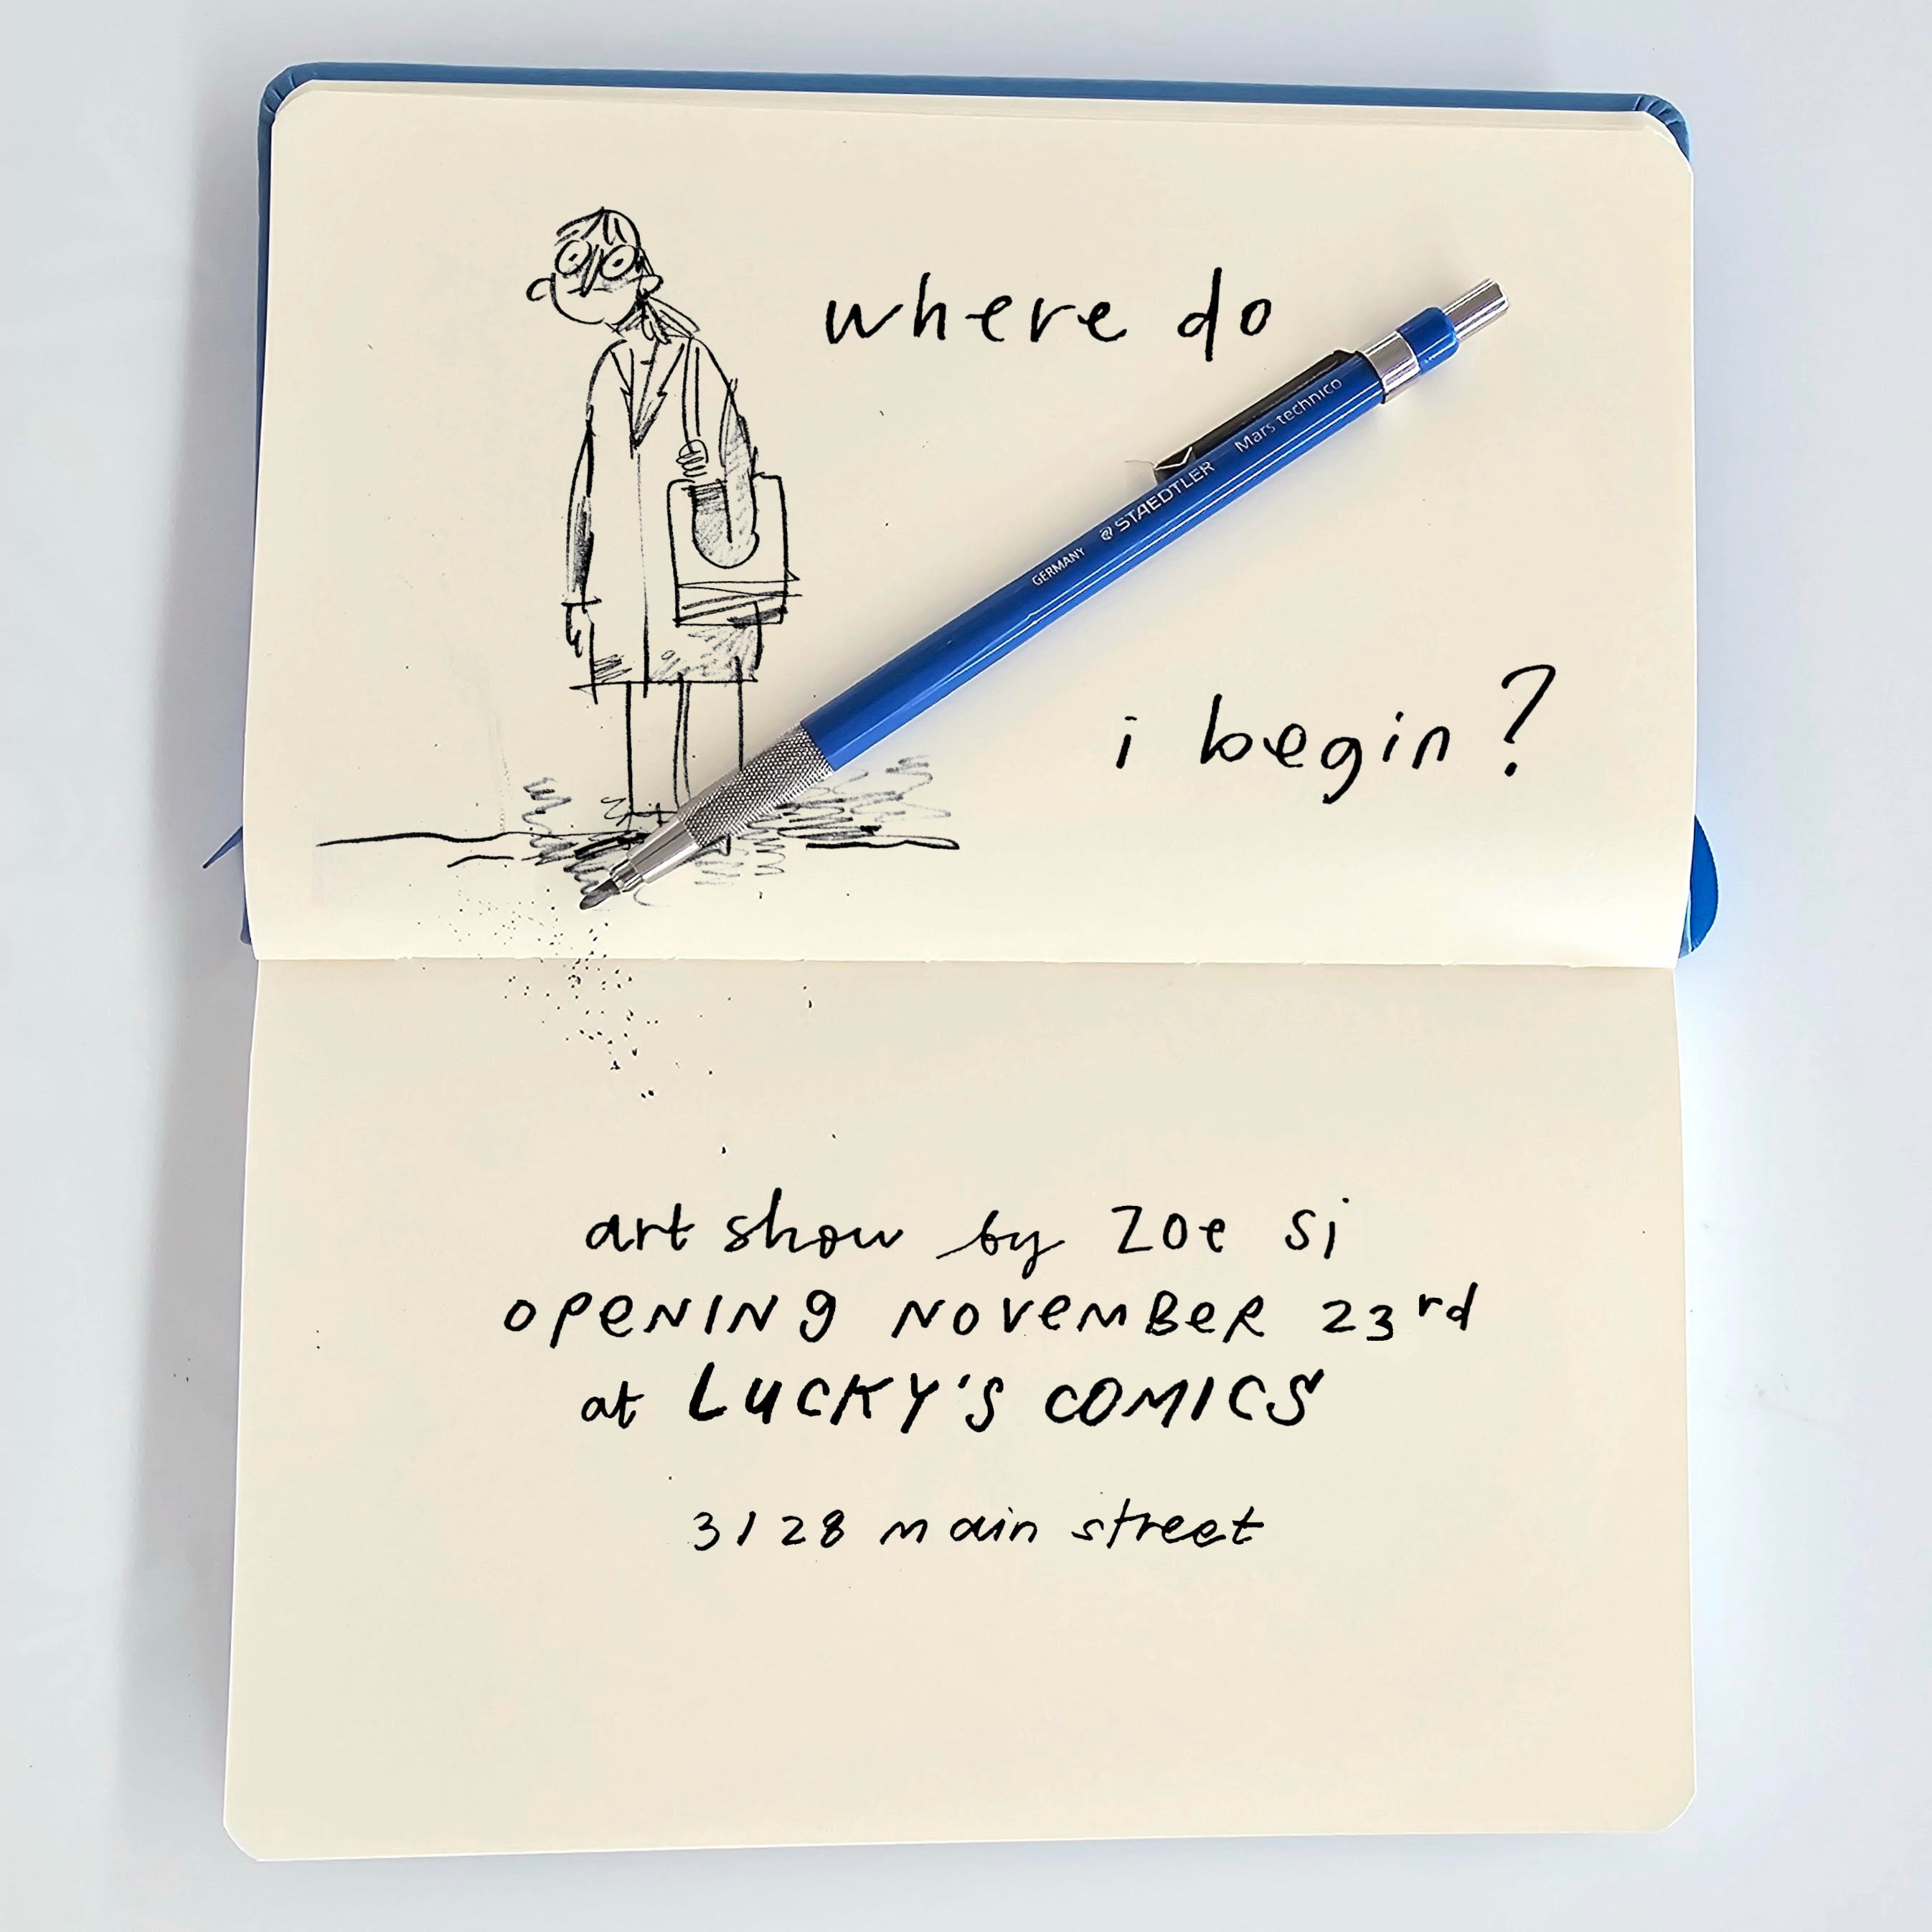 where do
Mars technico
STAEDTLER
GERMANY
i begin?
art show by Zoe Si
OPENING NOVEMBER 23rd
at LUCKY'S COMICS
3128 main street